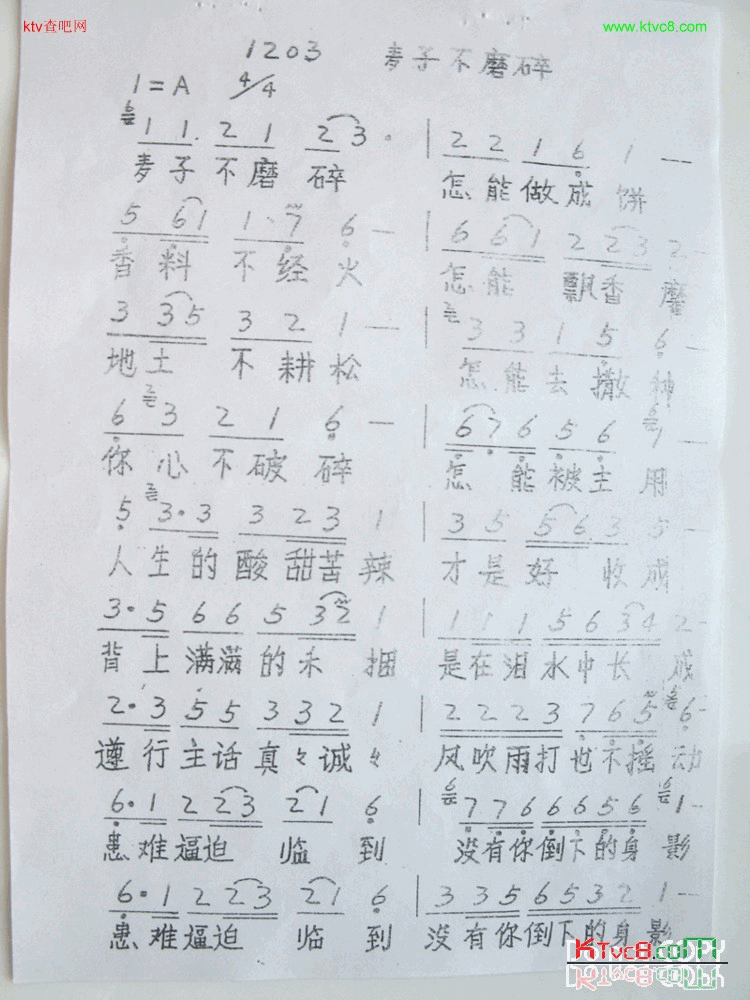 ktv查吧网 www.ktvc8.com
1203 麦子不磨碎
1=A 4/4
1 1 2 1 2 3 · | 2 2 1 6 1 —
麦子不磨碎 怎能做成饼
5 6 1 1 · 7 6 — | 6 6 1 2 2 3 2 —
香料不经火 怎能飘香
3 3 5 3 2 1 — | 3 3 1 5 6 —
地土不耕松 怎能去撒种
6 3 2 1 6 — | 6 7 6 5 6 1 —
你心不破碎 怎能被主用
5 3 · 3 3 2 3 1 | 3 5 5 6 3 5 —
人生的酸甜苦辣 才是好收成
3 · 5 6 6 5 3 2 1 | 1 1 1 5 6 3 4 2 —
背上满满的禾捆 是在泪水中长成
2 · 3 5 5 3 3 2 1 | 2 2 2 3 7 6 5 6 —
遵行主话真々诚々 风吹雨打也不摇动
6 · 1 2 2 3 2 1 6 7 7 6 6 6 5 6 1 —
患难逼迫临到 没有你倒下的身影
6 · 1 2 2 3 2 1 6 | 3 3 5 6 5 3 2 1 —
患难逼迫临到 没有你倒下的身影
KTvc8.com